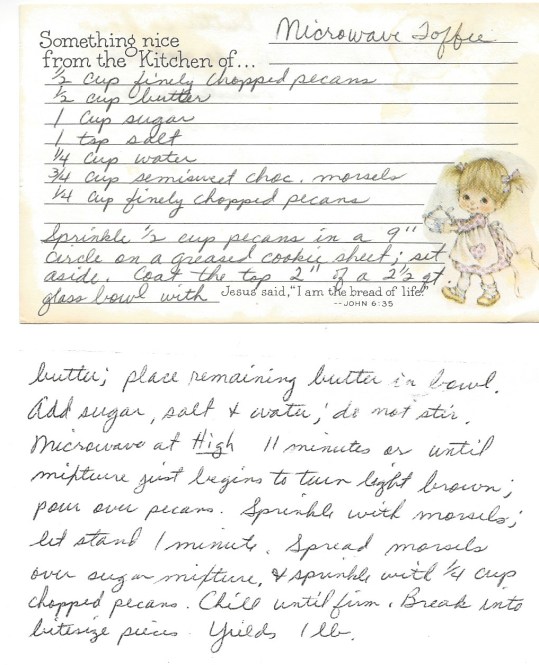 Something nice
from the Kitchen of...
Microwave Toffee
1/2 cup finely chopped pecans
1/2 cup butter
1 cup sugar
1 tsp salt
1/4 cup water
3/4 cup semisweet choc. morsels
1/4 cup finely chopped pecans
Sprinkle 1/2 cup pecans in a 9"
circle on a greased cookie sheet; set
aside. Coat the top 2" of a 2 1/2 qt.
glass bowl with
Jesus said, "I am the bread of life."
--JOHN 6:35
butter; place remaining butter in bowl.
Add sugar, salt & water; do not stir.
Microwave at High 11 minutes or until
mixture just begins to turn light brown;
pour over pecans. Sprinkle with morsels;
let stand 1 minute. Spread morsels
over sugar mixture, & sprinkle with 1/4 cup
chopped pecans. Chill until firm. Break into
bitesize pieces. Yields 1 lb.